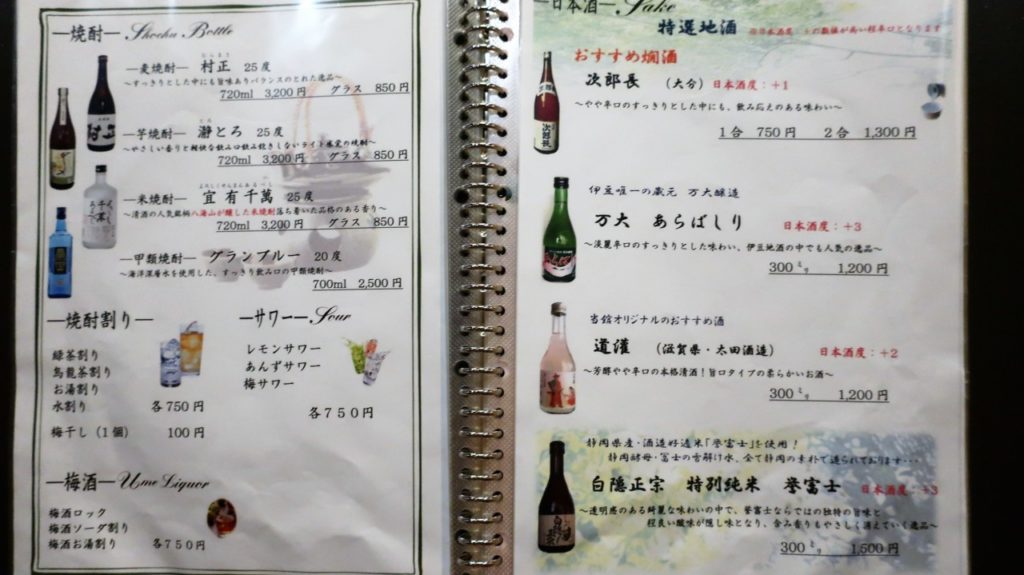 —焼酎— Shochu Bottle
むらまさ
—麦焼酎— 村正 25度
～すっきりとした中にも旨味ありバランスのとれた逸品～
720ml 3,200円 グラス 850円
とろ
—芋焼酎— 瀞とろ 25度
～やさしい香りと軽快な飲み口飲み飽きしないライト感覚の焼酎～
720ml 3,200円 グラス 850円
よろしくせんまんあるべし
—米焼酎— 宜有千萬 25度
～清酒の人気銘柄八海山が醸した米焼酎落ち着いた品格のある香り～
720ml 3,200円 グラス 850円
—甲類焼酎— グランブルー 20度
～海洋深層水を使用した、すっきり飲み口の甲類焼酎～
700ml 2,500円
—焼酎割り—
緑茶割り
烏龍茶割り
お湯割り
水割り
各750円
梅干し(1個) 100円
—サワー— Sour
レモンサワー
あんずサワー
梅サワー
各750円
—梅酒— Ume Liquor
梅酒ロック
梅酒ソーダ割り
梅酒お湯割り 各750円
—日本酒— Sake
特選地酒 ※日本酒度:+の数値が高い程辛口となります
おすすめ燗酒
次郎長 (大分) 日本酒度:+1
～やや辛口のすっきりとした中にも、飲み応えのある味わい～
1合 750円 2合 1,300円
伊豆唯一の蔵元 万大醸造
万大 あらばしり 日本酒度:+3
～淡麗辛口のすっきりとした味わい、伊豆地酒の中でも人気の逸品～
300㍉ 1,200円
当館オリジナルのおすすめ酒
道灌 (滋賀県・太田酒造) 日本酒度:+2
～芳醇やや辛口の本格清酒!旨口タイプの柔らかいお酒～
300㍉ 1,200円
静岡県産・酒造好適米「誉富士」を使用!
静岡酵母・富士の雪解け水、全て静岡の素材で造られております・・・
白隠正宗 特別純米 誉富士 日本酒度:+3
～透明感のある綺麗な味わいの中で、誉富士ならではの独特の旨味と
程良い酸味が隠し味となり、含み香りもやさしく消えていく逸品～
300㍉ 1,500円